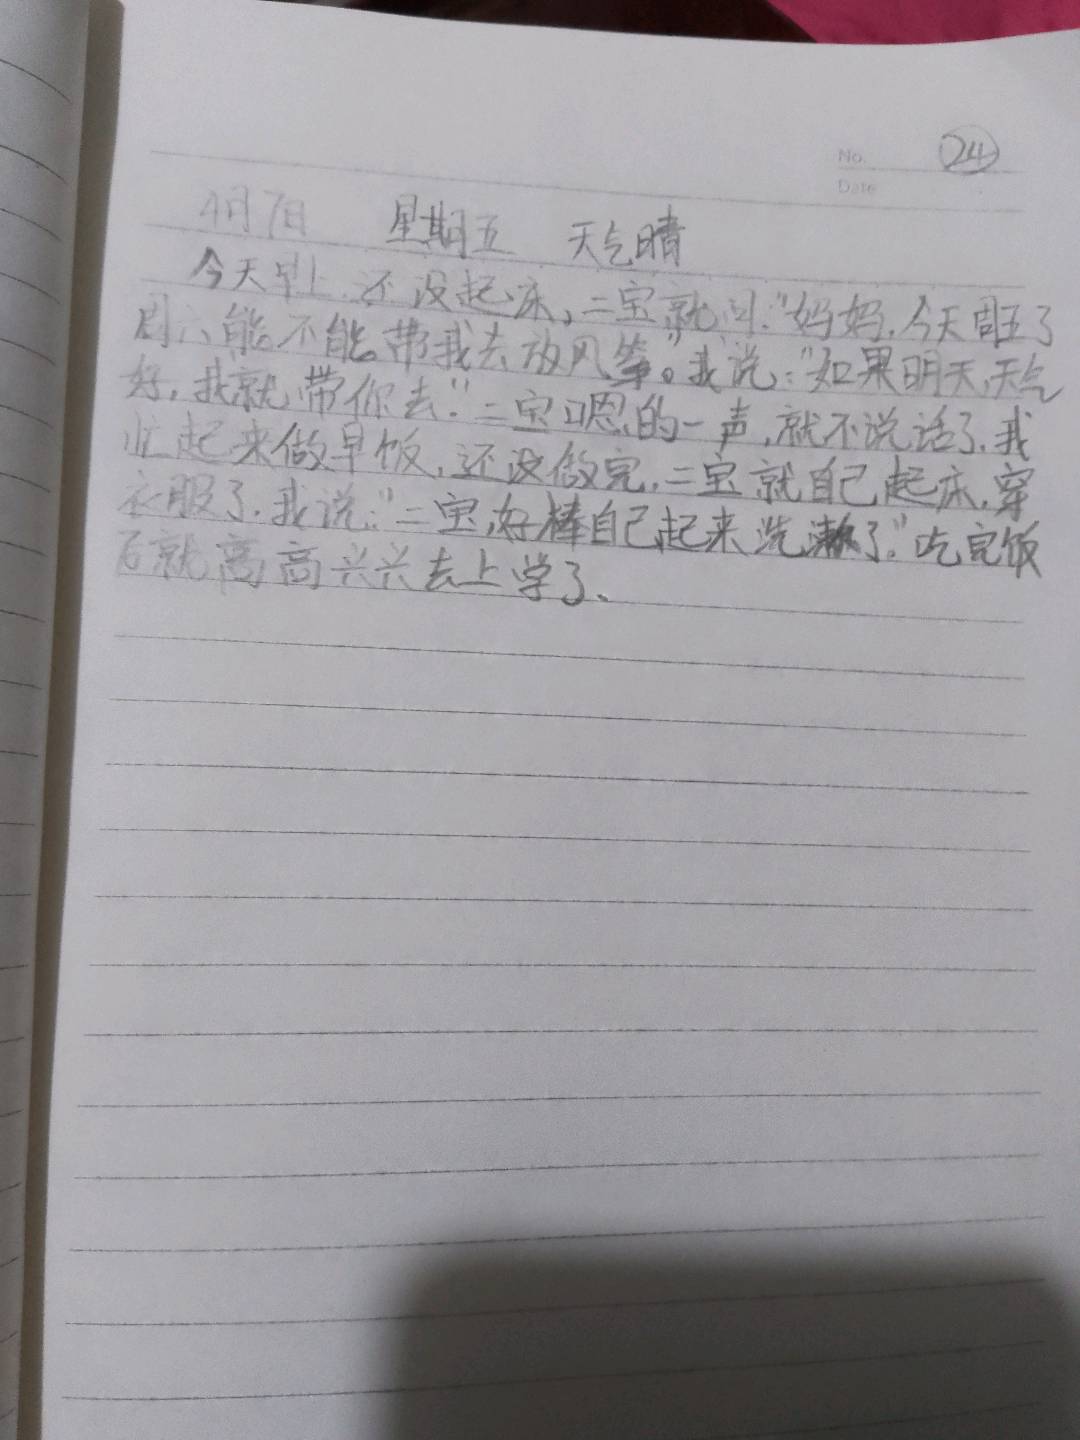 No. 24
Date
4月7日 星期五 天气晴
今天早上还没起床,二宝就问."妈妈,今天周五了
周六能不能带我去放风筝"。我说:"如果明天,天气
好,我就带你去."二宝嗯的一声,就不说话了.我
忙起来做早饭,还没做完,二宝就自己起床,穿
衣服了.我说:"二宝,好棒自己起来洗漱了."吃完饭
后就高高兴兴去上学了、